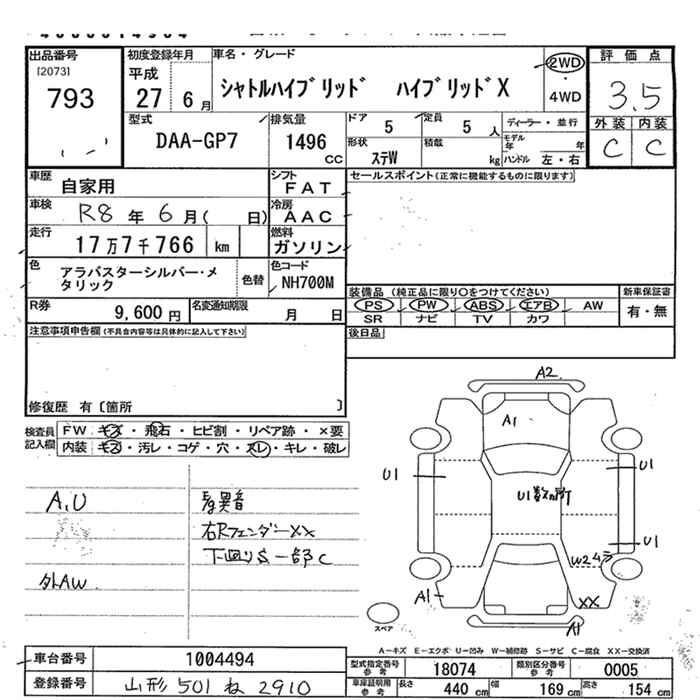 出品番号
[2073]
793
初度登録年月
平成
27 6 月
車名・グレード
シャトルハイブリッド ハイブリッドX
2WD
4WD
評価点
3.5
外装 内装
C C
型式
DAA-GP7
排気量
1496
CC
ドア
5
定員
5 人
形状
ステW
積載
kg
ディーラー・並行
モデル年 年
ハンドル 左・右
車歴
自家用
シフト
FAT
車検
R8 年 6 月( 日)
冷房
AAC
走行
17万7千766 km
燃料
ガソリン
色
アラバスターシルバー・メタリック
色替
色コード
NH700M
R券
9,600 円
名変通知期限
月 日
セールスポイント(正常に機能するものに限ります)
装備品 (純正品に限り○をつけてください)
PS PW ABS エアB AW
SR ナビ TV カワ
新車保証書
有・無
後日品
注意事項申告欄(不具合内容等は具体的に記入して下さい)
修復歴 有〔箇所 〕
検査員記入欄
FW キズ・飛石・ヒビ割・リペア跡・×要
内装 キズ・汚レ・コゲ・穴・スレ・キレ・破レ
A,U
外AW
異音
右Rフェンダー××
下廻りS一部C
A2
A1
U1
U1
U1数ヶ所
U1
W2ムラ
A1
XX
A1
スペア
A−キズ E−エクボ U−凹み W−補修跡 S−サビ C−腐食 XX−交換済
車台番号
1004494
登録番号
山形 501 ね 2910
型式指定番号
参考
18074
類別区分番号
参考
0005
車庫証明用
参考
長さ
440 cm
幅
169 cm
高さ
154 cm